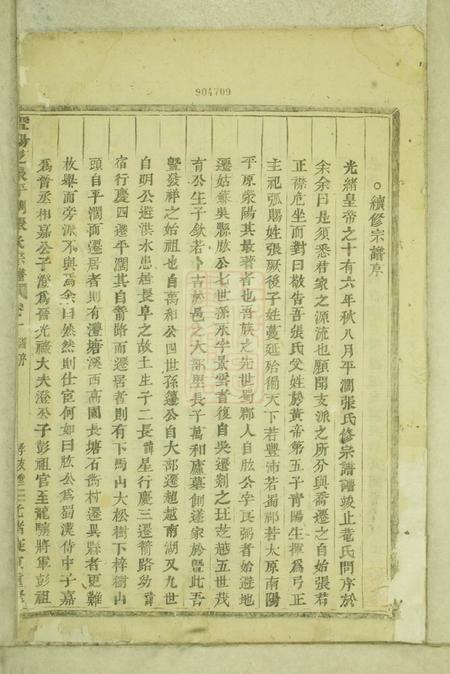 904709
○續修宗譜序
光緒皇帝之十有六年秋八月平濶張氏修宗譜譜竣止菴氏問序於
余余曰是須悉君家之源流也願聞支派之所分與喬遷之自始張君
正襟危坐而對曰敬告吾張氏受姓於黃帝第五子青陽生揮爲弓正
主祀弧賜姓張厥後子姓蔓延殆徧天下若豐沛若蜀郡若太原南陽
平原滎陽其最著者也吾族之先世蜀郡人自肱公字良弼者始避地
遷姑蘇吳縣肱公七世孫永字景雲者復自吳遷剡之珏芝越五世茂
有公生子欽若卜吉於邑之大部里長子萬和廬墓側遂家於暨此吾
暨發祥之始祖也自萬和公四世孫籩公自大部遷趙越南湖又九世
自明公避洪水患居長阜之故土生子二長諱星行慶三遷箭路幼諱
宿行慶四遷平濶其自箭路而遷居者則有下馬山大松樹下梓樹山
頭自平濶而遷居者則有澧塘溪西高園長塘石衕村遷異縣者更難
枚舉而旁派不與焉余曰然然則仕宦何如曰肱公爲蜀漢侍中子嘉
爲晉丞相嘉公子澄爲晉光祿大夫澄公子彭祖官至龍驤將軍彭祖
暨陽 平濶張氏宗譜 卷一 序